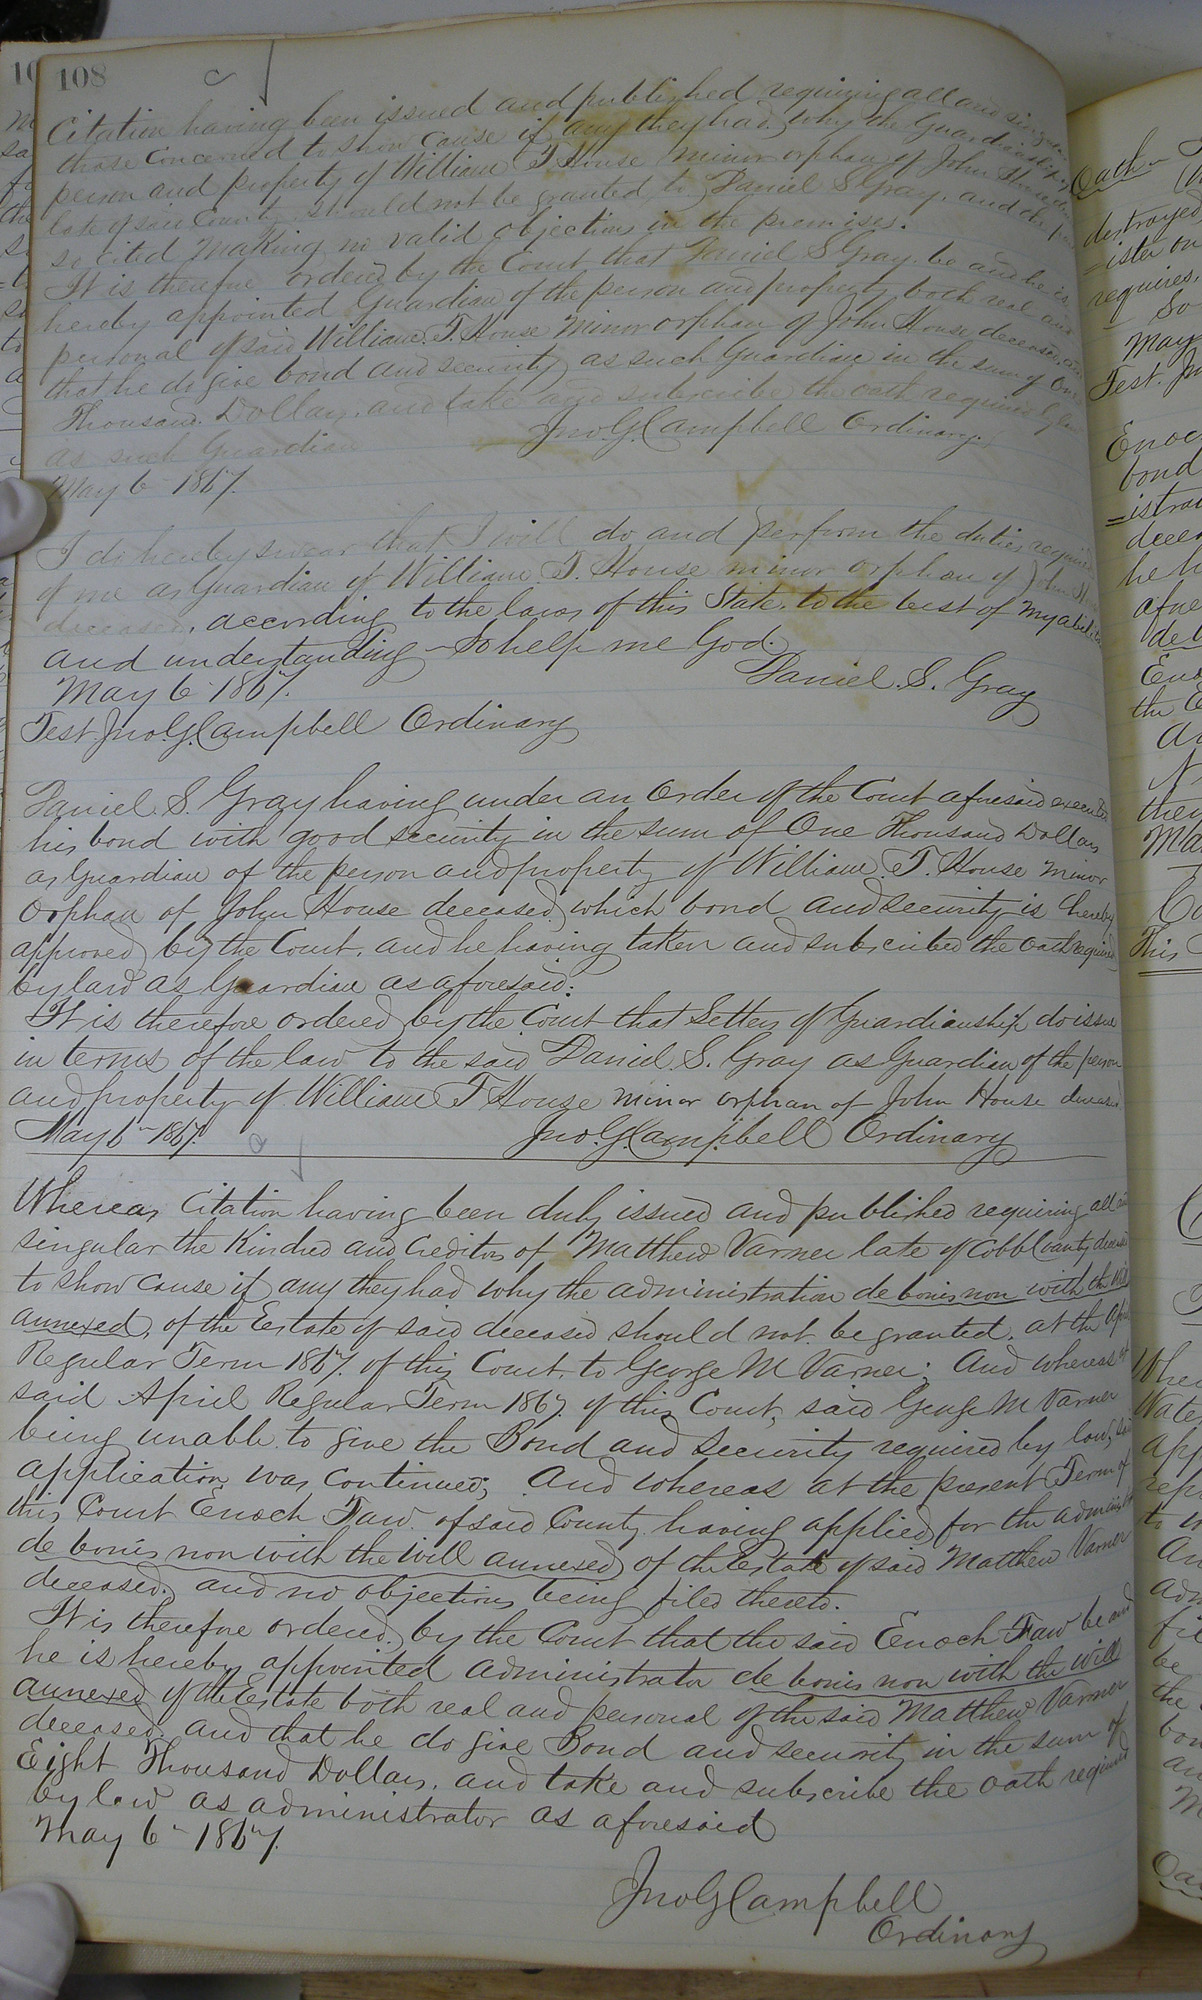 108
Citation having been issued and published requiring all and singular
those concerned to show cause if any they had why the Guardianship of
person and property of William T. House minor orphan of John House
late of said County should not be granted to Daniel S Gray, and the
so cited making no valid objection in the premises.
It is therefore ordered by the Court that Daniel S Gray be and he is
hereby appointed Guardian of the person and property both real and
personal of said William. T. House minor orphan of John House deceased, and
that he do give bond and security as such Guardian in the sum of One
Thousand Dollars, and take and subscribe the oath required by law
as such Guardian
May 6 1867. Jno. G. Campbell Ordinary.
I do hereby swear that I will do and perform the duties required
of me as Guardian of William. T. House minor orphan of John House
deceased, according to the laws of this State, to the best of my ability
and understanding - So help me God.
May 6 1867. Daniel. S. Gray
Test. Jno. G. Campbell Ordinary
Daniel. S. Gray having under an order of the Court aforesaid executed
his bond with good security in the sum of One Thousand Dollars
as Guardian of the person and property of William. T. House minor
orphan of John House deceased, which bond and security is hereby
approved by the Court, and he having taken and subscribed the oath required
by law as Guardian as aforesaid:
It is therefore ordered by the Court that Letters of Guardianship do issue
in terms of the law to the said Daniel. S. Gray as Guardian of the person
and property of William T House minor orphan of John House deceased.
May 6- 1867. Jno. G. Campbell Ordinary
Whereas Citation having been duly issued and published requiring all and
singular the Kindred and Creditors of Matthew Varner late of Cobb County deceased
to show cause if any they had why the administration de bonis non with the Will
annexed, of the Estate of said deceased should not be granted, at the April
Regular Term 1867. of this Court, to George M Varner; And whereas at
said April Regular Term 1867. of this Court, said George M Varner
being unable to give the Bond and Security required by law, said
application was continued; And whereas at the present Term of
this Court Enoch Faw of said County having applied for the administration
de bonis non with the Will annexed, of the Estate of said Matthew Varner
deceased, and no objections being filed thereto.
It is therefore ordered by the Court that the said Enoch Faw be and
he is hereby appointed administrator de bonis non with the Will
annexed of the Estate both real and personal of the said Matthew Varner
deceased, and that he do give Bond and security in the sum of
Eight Thousand Dollars, and take and subscribe the oath required
by law as administrator as aforesaid
May 6- 1867.
Jno G Campbell
Ordinary